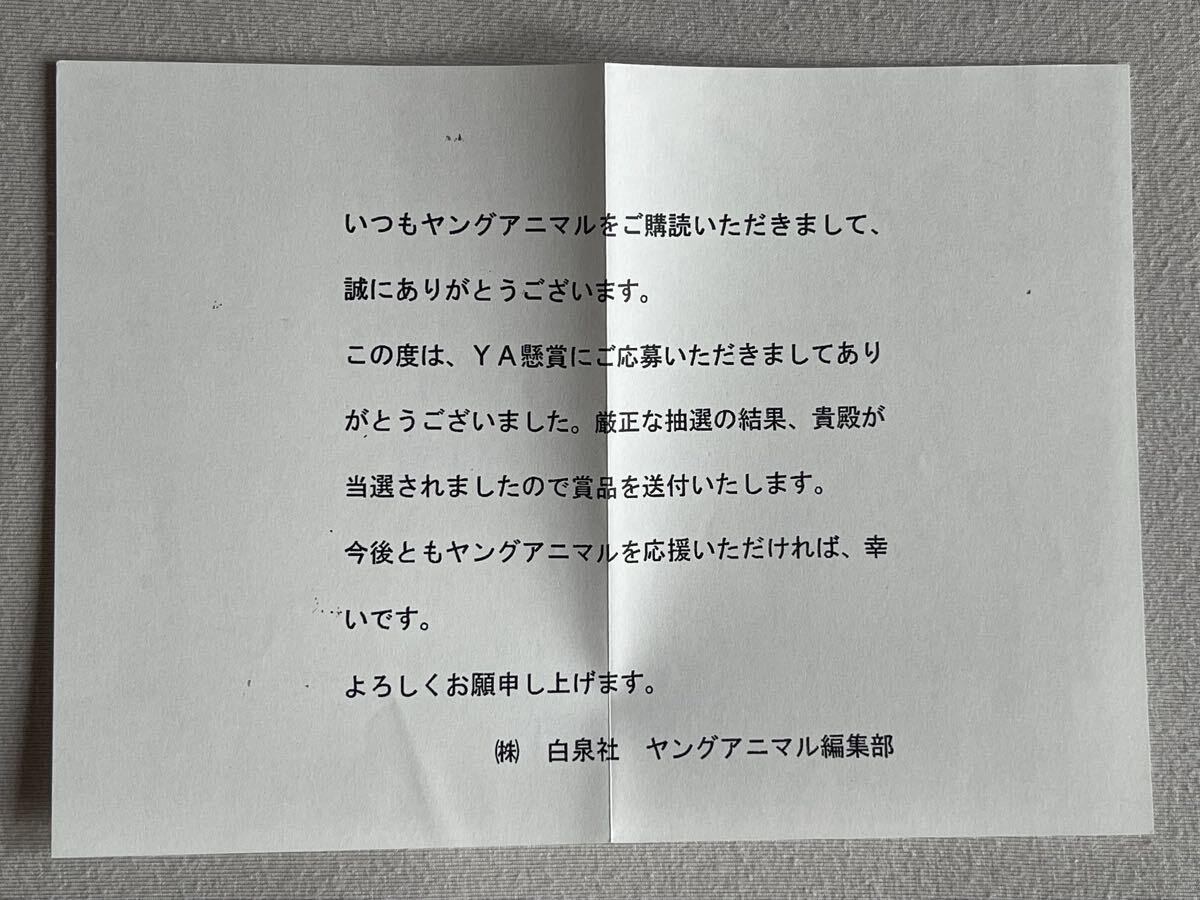 いつもヤングアニマルをご購読いただきまして、
誠にありがとうございます。
この度は、ＹＡ懸賞にご応募いただきましてあり
がとうございました。厳正な抽選の結果、貴殿が
当選されましたので賞品を送付いたします。
今後ともヤングアニマルを応援いただければ、幸
いです。
よろしくお願申し上げます。
㈱　白泉社　ヤングアニマル編集部